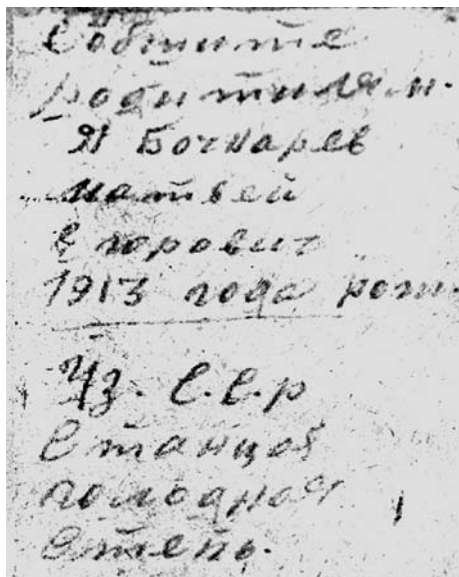 Собщите
родитилям.
Я Бочкарев
матвей
Егорович
1913 года рож.
Уз. С.С.р
Станцоя
голодноя
Степь.